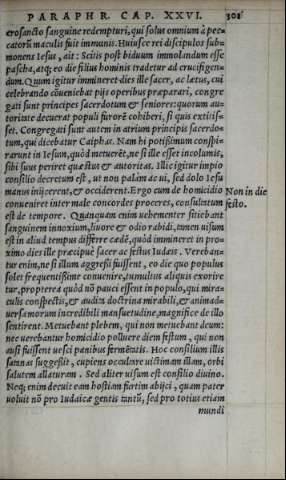 PARAPHR. CAP. XXVI. 301
crosancto sanguine redempturi, qui solus omnium à pec=
catorũ maculis fuit immunis. Huiusce rei discipulos sub=
monens Iesus, ait: Scitis post biduum immolandum esse
pascha, atq; eo die filius hominis tradetur ad crucifigen=
dum. Quum igitur immineret dies ille sacer, ac lætus, cui
celebrando cõueniebat pijs operibus præparari, congre
gati sunt principes sacerdotum & seniores: quorum au=
toritate decuerat populi furorẽ cohiberi, si quis extitis=
set. Congregati sunt autem in atrium principis sacerdo=
tum, qui dicebatur Caiphas. Nam hi potißimum conspi=
rarunt in Iesum, quòd metuerẽt, ne si ille esset incolumis,
sibi suus periret quæstus & autoritas. Illic igitur impio
consilio decretum est, ut non palàm ac ui, sed dolo Iesu
manus inijcerent, & occiderent. Ergo cum de homicidio
Non in die
conueniret inter male concordes proceres, consulatum
festo.
est de tempore. Quanquàm enim uehementer sitiebant
sanguinem innoxium, liuore & odio rabidi, tamen uisum
est in aliud tempus differre cædẽ, quòd immineret in pro=
ximo dies ille præcipuè sacer ac festus Iudæis. Vereban=
tur enim, ne si illum aggreßi fuissent, eo die quo populus
solet frequentißime conuenire, tumultus aliquis exorire
tur, propterea quòd nõ pauci essent in populo, qui mira=
culis conspectis, & audita doctrina mirabili, & animad=
uersa morum incredibili mansuetudine, magnifice de illo
sentirent. Metuebant plebem, qui non metuebant deum:
nec uerebantur homicidio polluere diem festum, qui non
ausi fuissent uesci panibus fermẽtatis. Hoc consilium illis
satanas suggeßit, cupiens occulare uictimam illam, orbi
salutem allaturam. Sed aliter uisum est consilio diuino.
Neq; enim decuit eam hostiam furtim abijci, quam pater
uoluit nõ pro Iudaicæ gentis tantũ, sed pro totius etiam
mundi